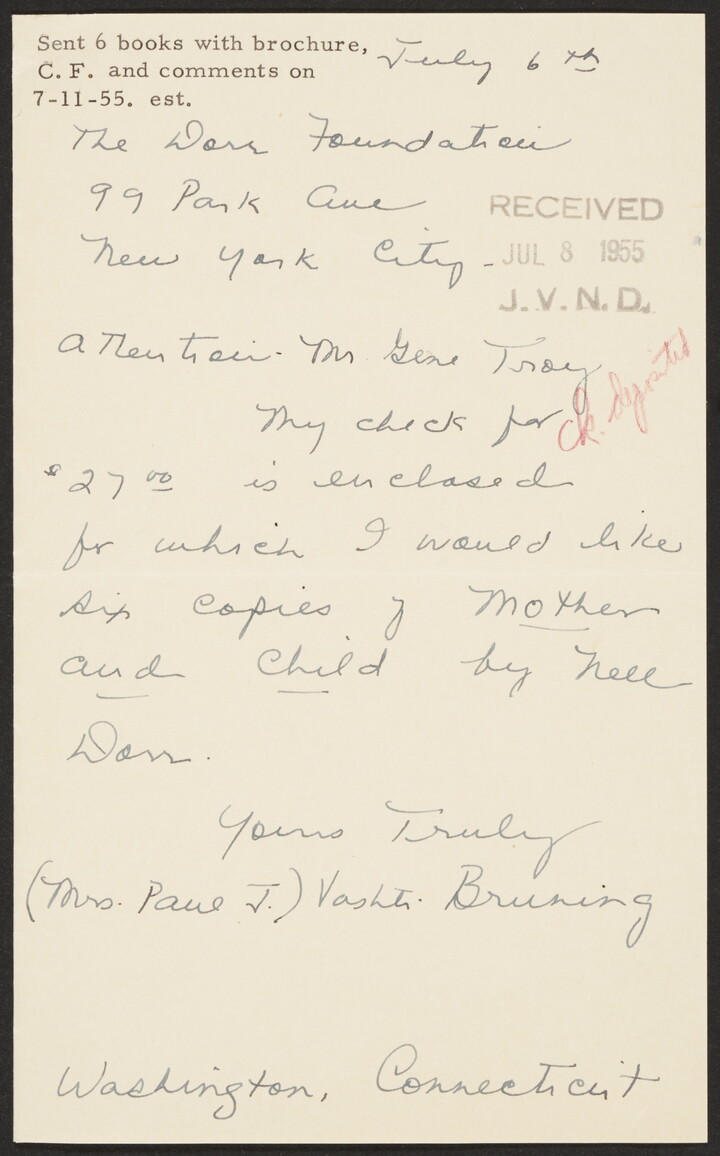 Sent 6 books with brochure,
C. F. and comments on
7-11-55. est.
July 6th
The Dorr Foundation
99 Park Ave
New York City -
RECEIVED
JUL 8 1955
J. V. N. D.
Attention - Mr Gene Troy
ck. deposited
My check for
$27.00 is enclosed
for which I would like
six copies of Mother
and Child by Nell
Dorr.
Yours Truly
(Mrs. Paul J.) Vashti Bruning
Washington, Connecticut